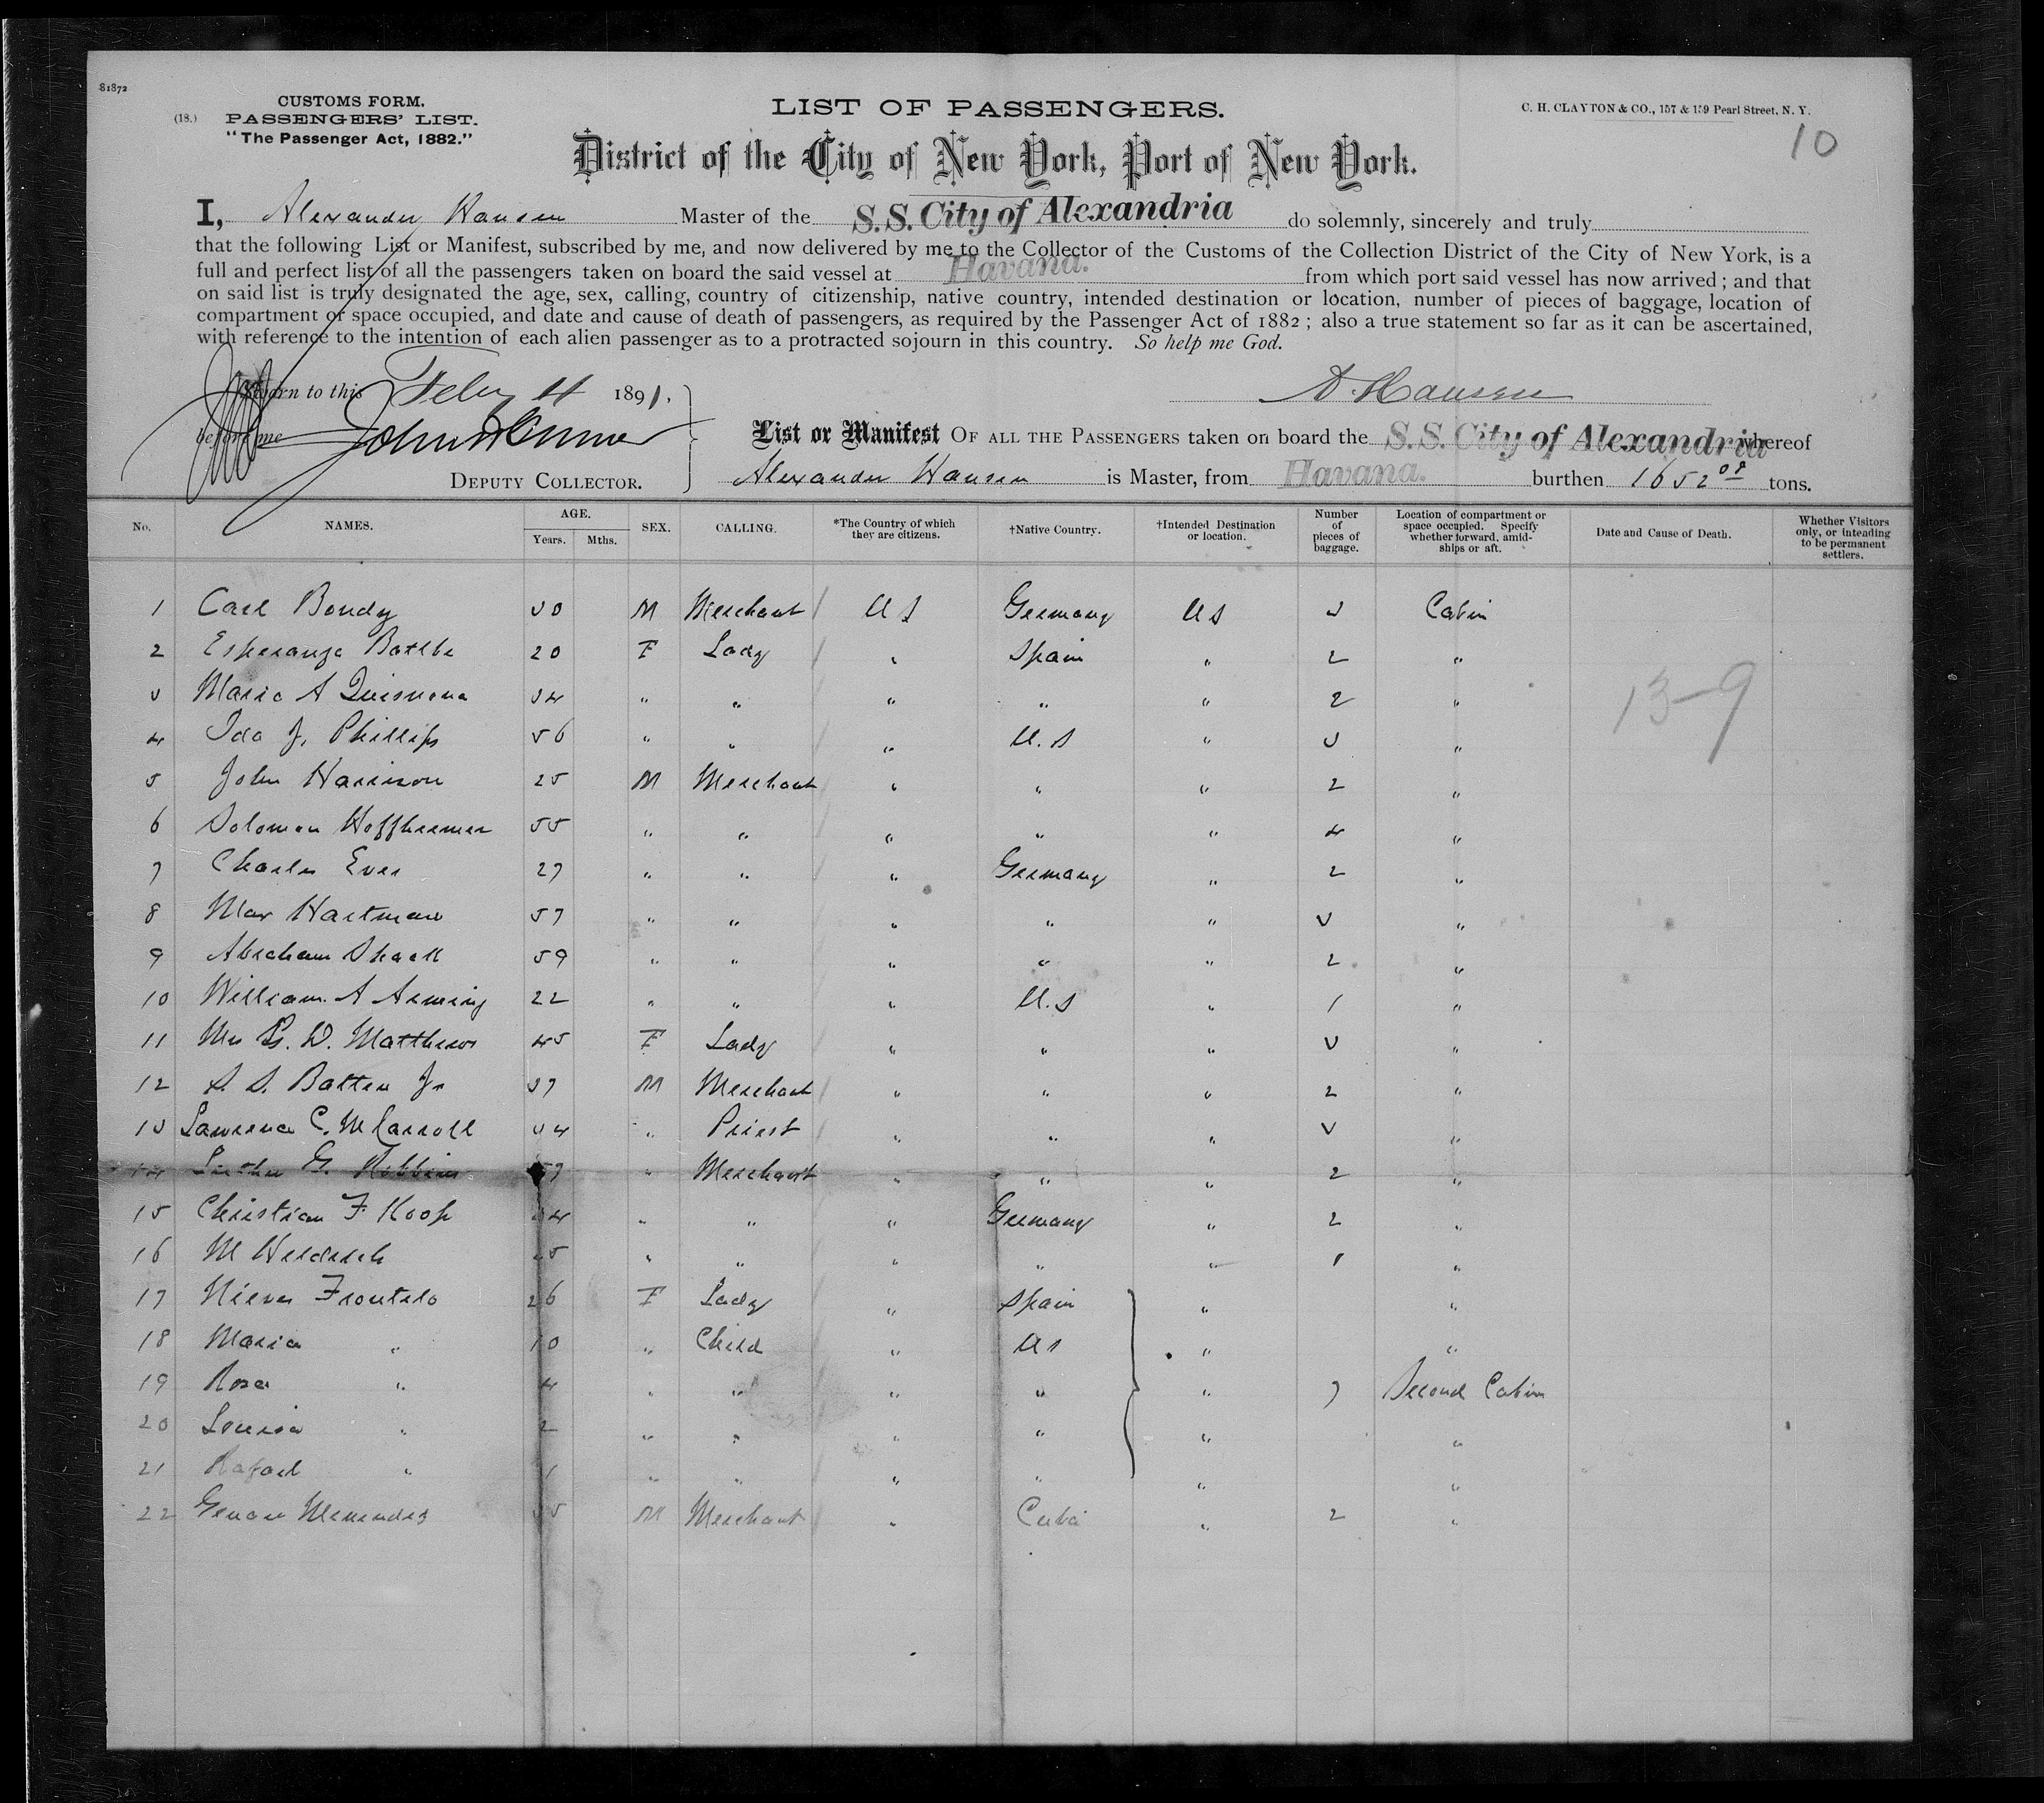 81872
(18.)
CUSTOMS FORM.
PASSENGERS' LIST.
"The Passenger Act, 1882."
LIST OF PASSENGERS.
C. H. CLAYTON & CO., 157 & 159 Pearl Street, N. Y.
10
District of the City of New York, Port of New York.
I, Alexander Hansen Master of the S. S. City of Alexandria do solemnly, sincerely and truly
that the following List or Manifest, subscribed by me, and now delivered by me to the Collector of the Customs of the Collection District of the City of New York, is a
full and perfect list of all the passengers taken on board the said vessel at Havana. from which port said vessel has now arrived; and that
on said list is truly designated the age, sex, calling, country of citizenship, native country, intended destination or location, number of pieces of baggage, location of
compartment or space occupied, and date and cause of death of passengers, as required by the Passenger Act of 1882; also a true statement so far as it can be ascertained,
with reference to the intention of each alien passenger as to a protracted sojourn in this country. So help me God.
Sworn to this Feby 4 1891.
A. Hansen
before me John
DEPUTY COLLECTOR.
List or Manifest OF ALL THE PASSENGERS taken on board the S. S. City of Alexandria whereof
Alexander Hansen is Master, from Havana. burthen 1652 02 tons.
No. NAMES. AGE. Years. Mths. SEX. CALLING. *The Country of which they are citizens. †Native Country. †Intended Destination or location. Number of pieces of baggage. Location of compartment or space occupied. Specify whether forward, amidships or aft. Date and Cause of Death. Whether Visitors only, or intending to be permanent settlers.
1 Carl Bondy 30 M Merchant U S Germany U S 3 Cabin
2 Esperanza Batlle 20 F Lady " Spain " 2 "
3 Maria A 34 " " " " " 2 "
4 Ida J. Phillips 56 " " " U. S " 3 "
13-9
5 John Harrison 25 M Merchant " " " 2 "
6 Solomon Hoffheimer 55 " " " " " 4 "
7 Charles Ever 27 " " " Germany " 2 "
8 Max Hartman 57 " " " " " 3 "
9 Abraham Shack 59 " " " " " 2 "
10 William A 22 " " " U. S " 1 "
11 Mrs G. W. Matthews 45 F Lady " " " 3 "
12 S. S. Batten Jr 37 M Merchant " " " 2 "
13 Lawrence C. McCarroll 34 " Priest " " " 3 "
14 Luther G. Robbins " Merchant " " " 2 "
15 Christian F. Koop " " " Germany " 2 "
16 M " " " " " 1 "
17 Nieves Frontelo 26 F Lady " Spain " "
18 Maria " 10 " Child " U S " "
19 Rosa " 4 " " " " " 7 Second Cabin
20 Louisa " 2 " " " " " "
21 Rafael " 1 " " " " " "
22 Genaro Menendez M Merchant " Cuba " 2 "